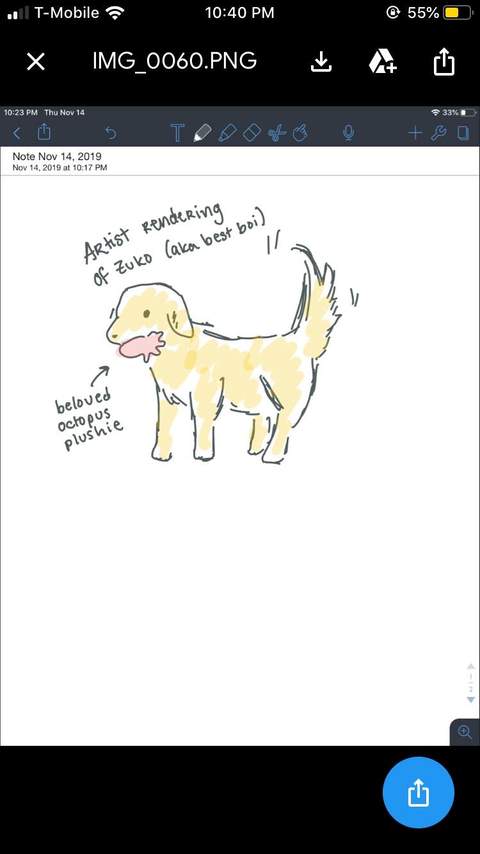 T-Mobile 10:40 PM 55%
IMG_0060.PNG
10:23 PM Thu Nov 14 33%
Note Nov 14, 2019
Nov 14, 2019 at 10:17 PM
Artist rendering
of Zuko (aka best boi)
beloved
octopus
plushie
1
2